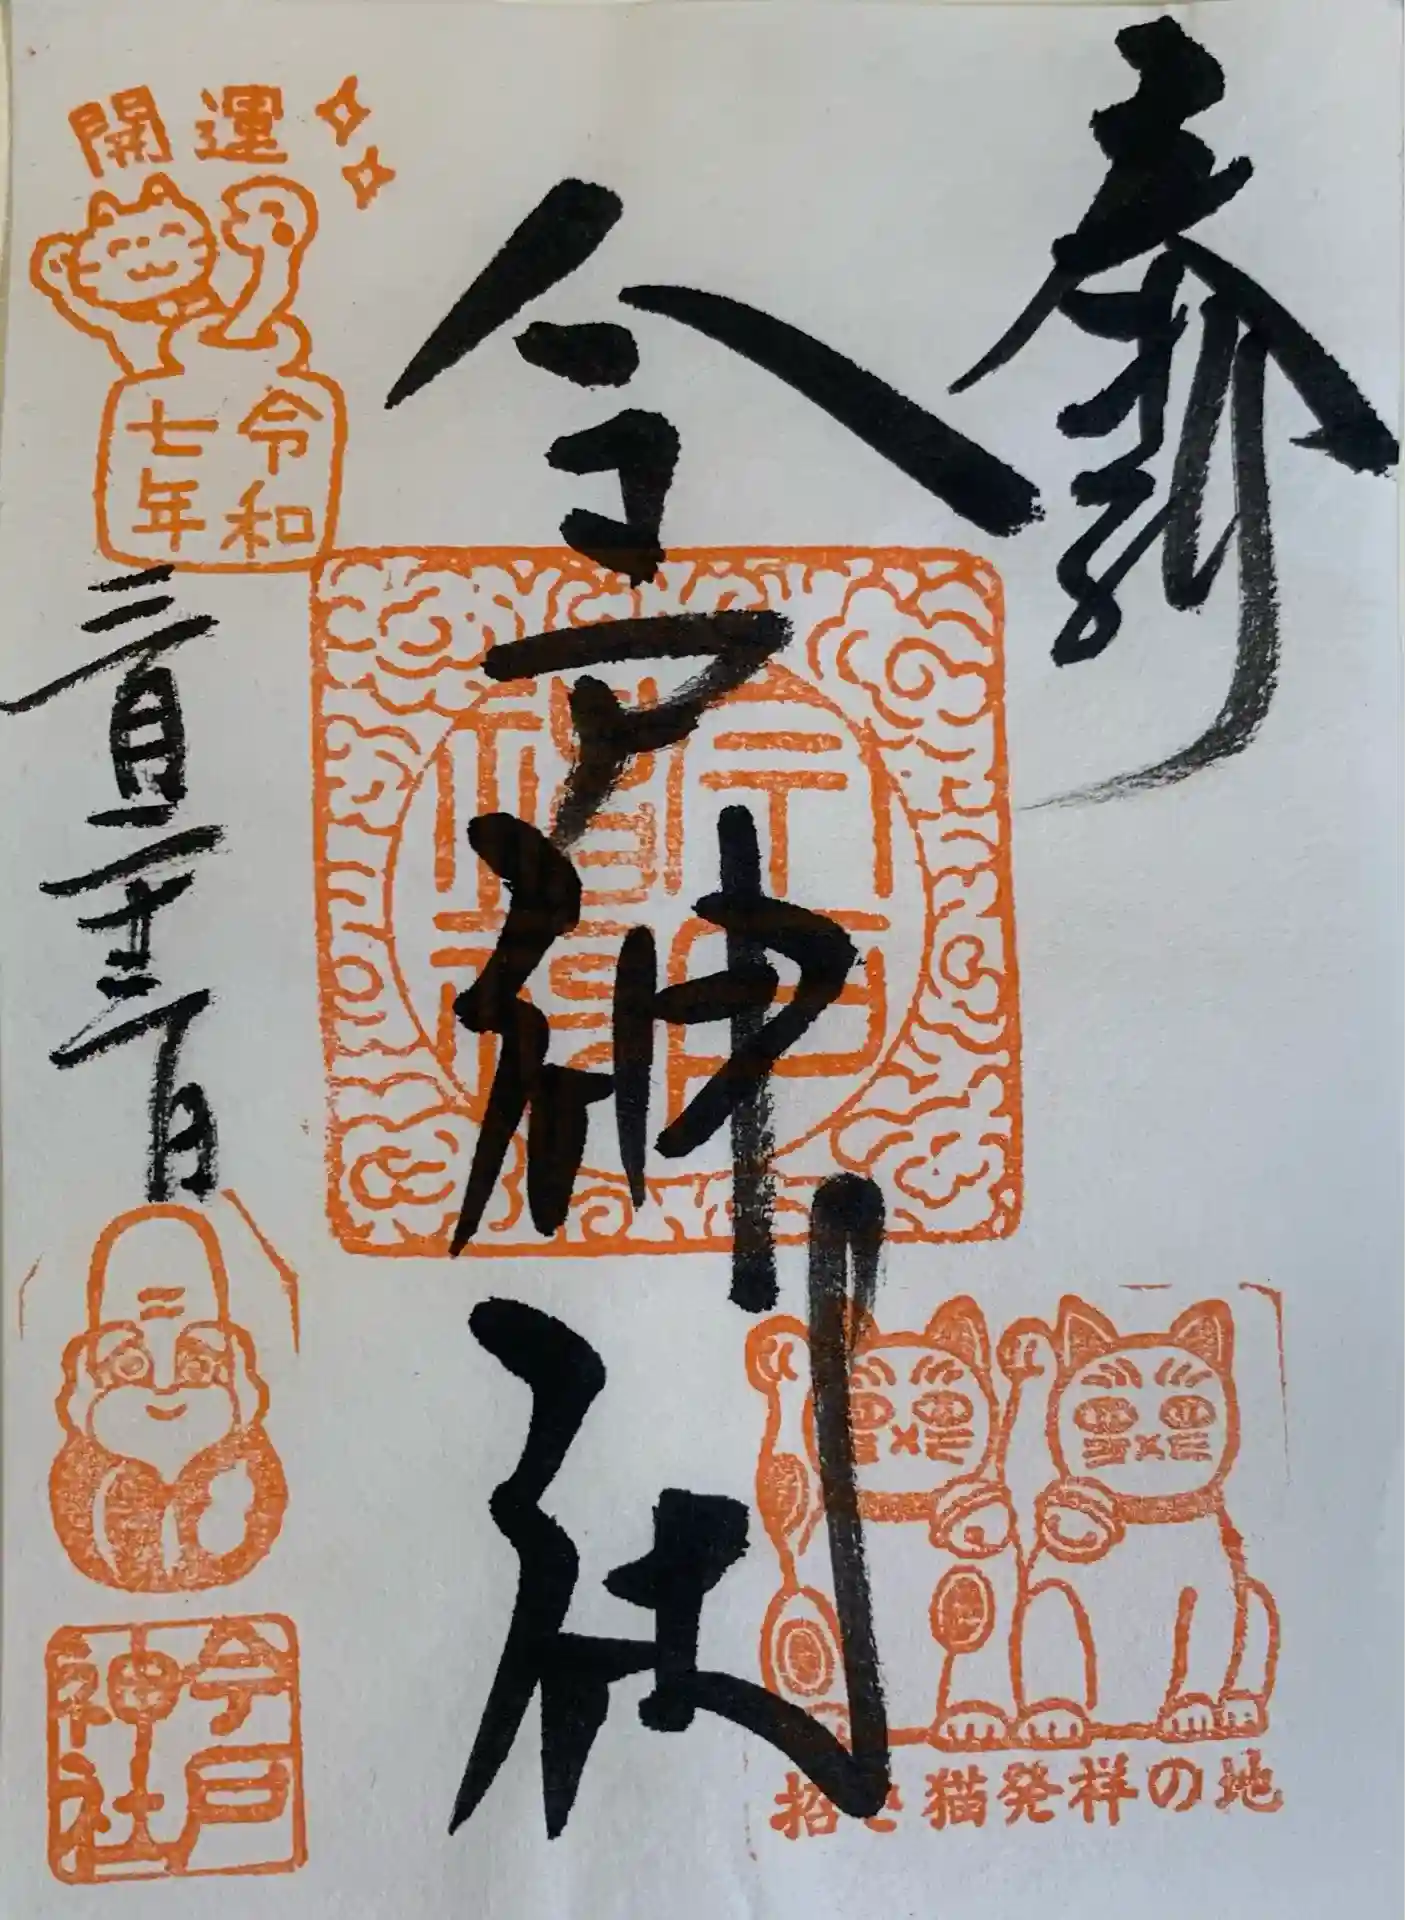 奉拝
今戸神社
開運
令和
七年
三月二十三日
今戸
神社
招き猫発祥の地